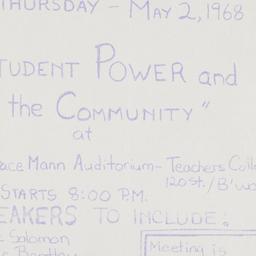 THURSDAY - MAY 2, 1968
TUDENT POWER and
the COMMUNITY"
at
ace Mann Auditorium - Teachers Colle
120 st. / B'wa
STARTS 8:00 P.M.
EAKERS TO INCLUDE:
Solomon
Meeting is